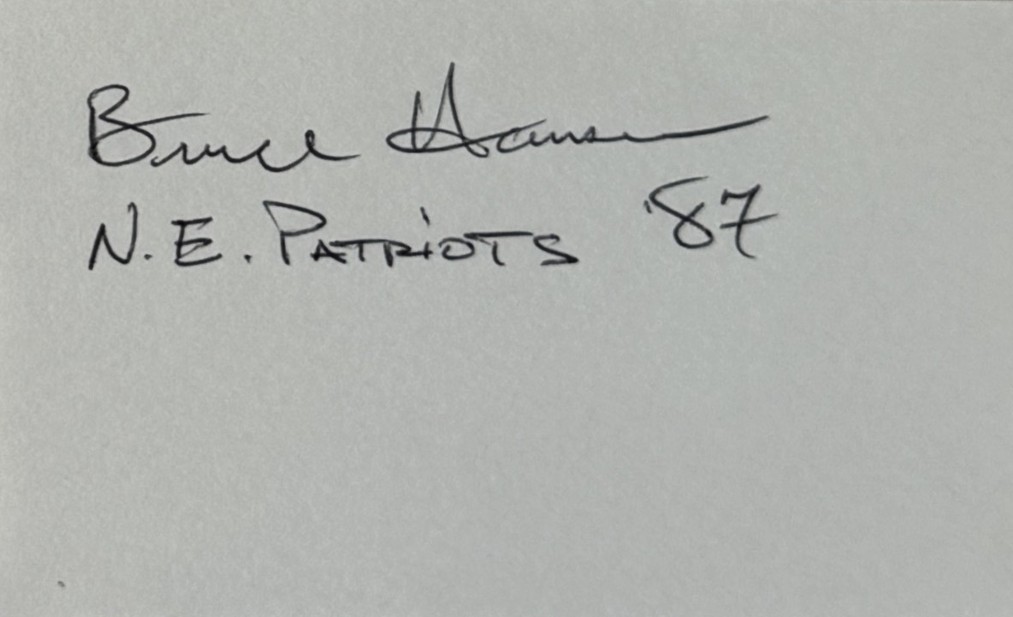 Bruce Hansen
N.E. PATRIOTS '87